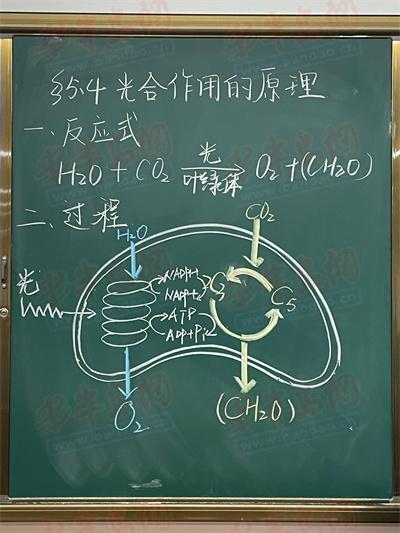 §5.4 光合作用的原理
一、反应式
H2O + CO2 光 叶绿体 O2 + (CH2O)
二、过程
H2O
CO2
光
NADPH
NADP+
ATP
ADP+Pi
C3
C5
O2
(CH2O)